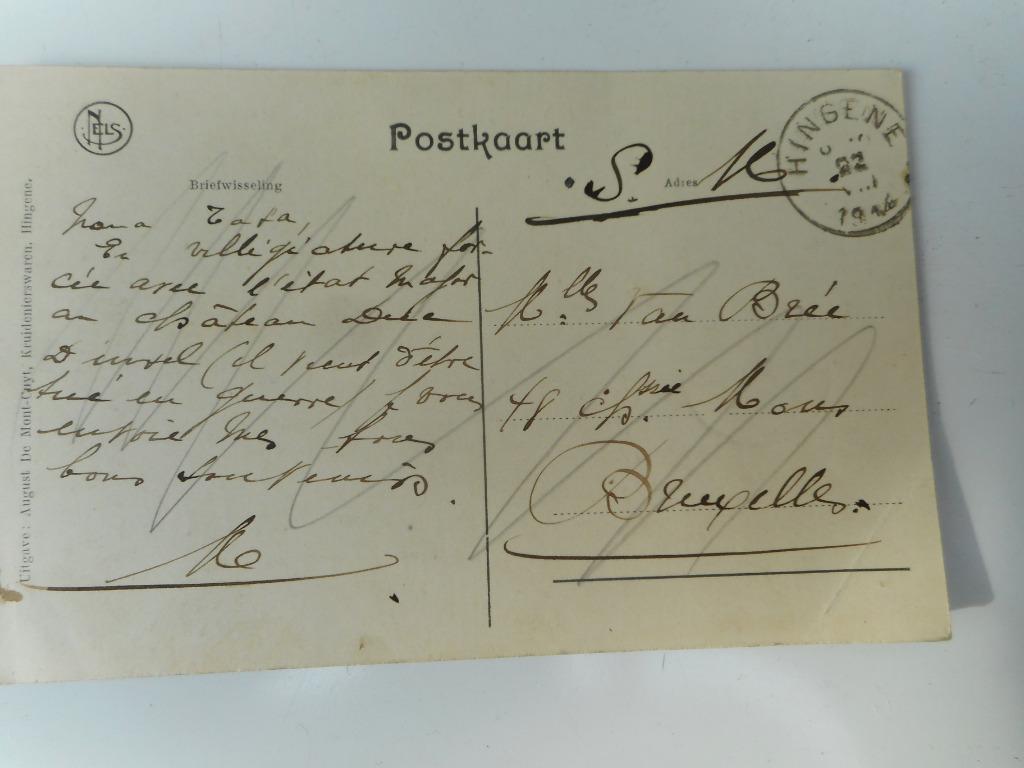 NELS
Postkaart
HINGENE
22
S. M
Adres
Briefwisseling
En villégiature for-
cée avec l'état major
au château Duc
D'ursel (il vient d'être
tué en guerre) vous
envoie mes
bons souvenirs.
M
Mlles Van Brée
48 chssée Mons
Bruxelles.
Uitgave: August De Mont-Cuyt, Kruidenierswaren, Hingene.